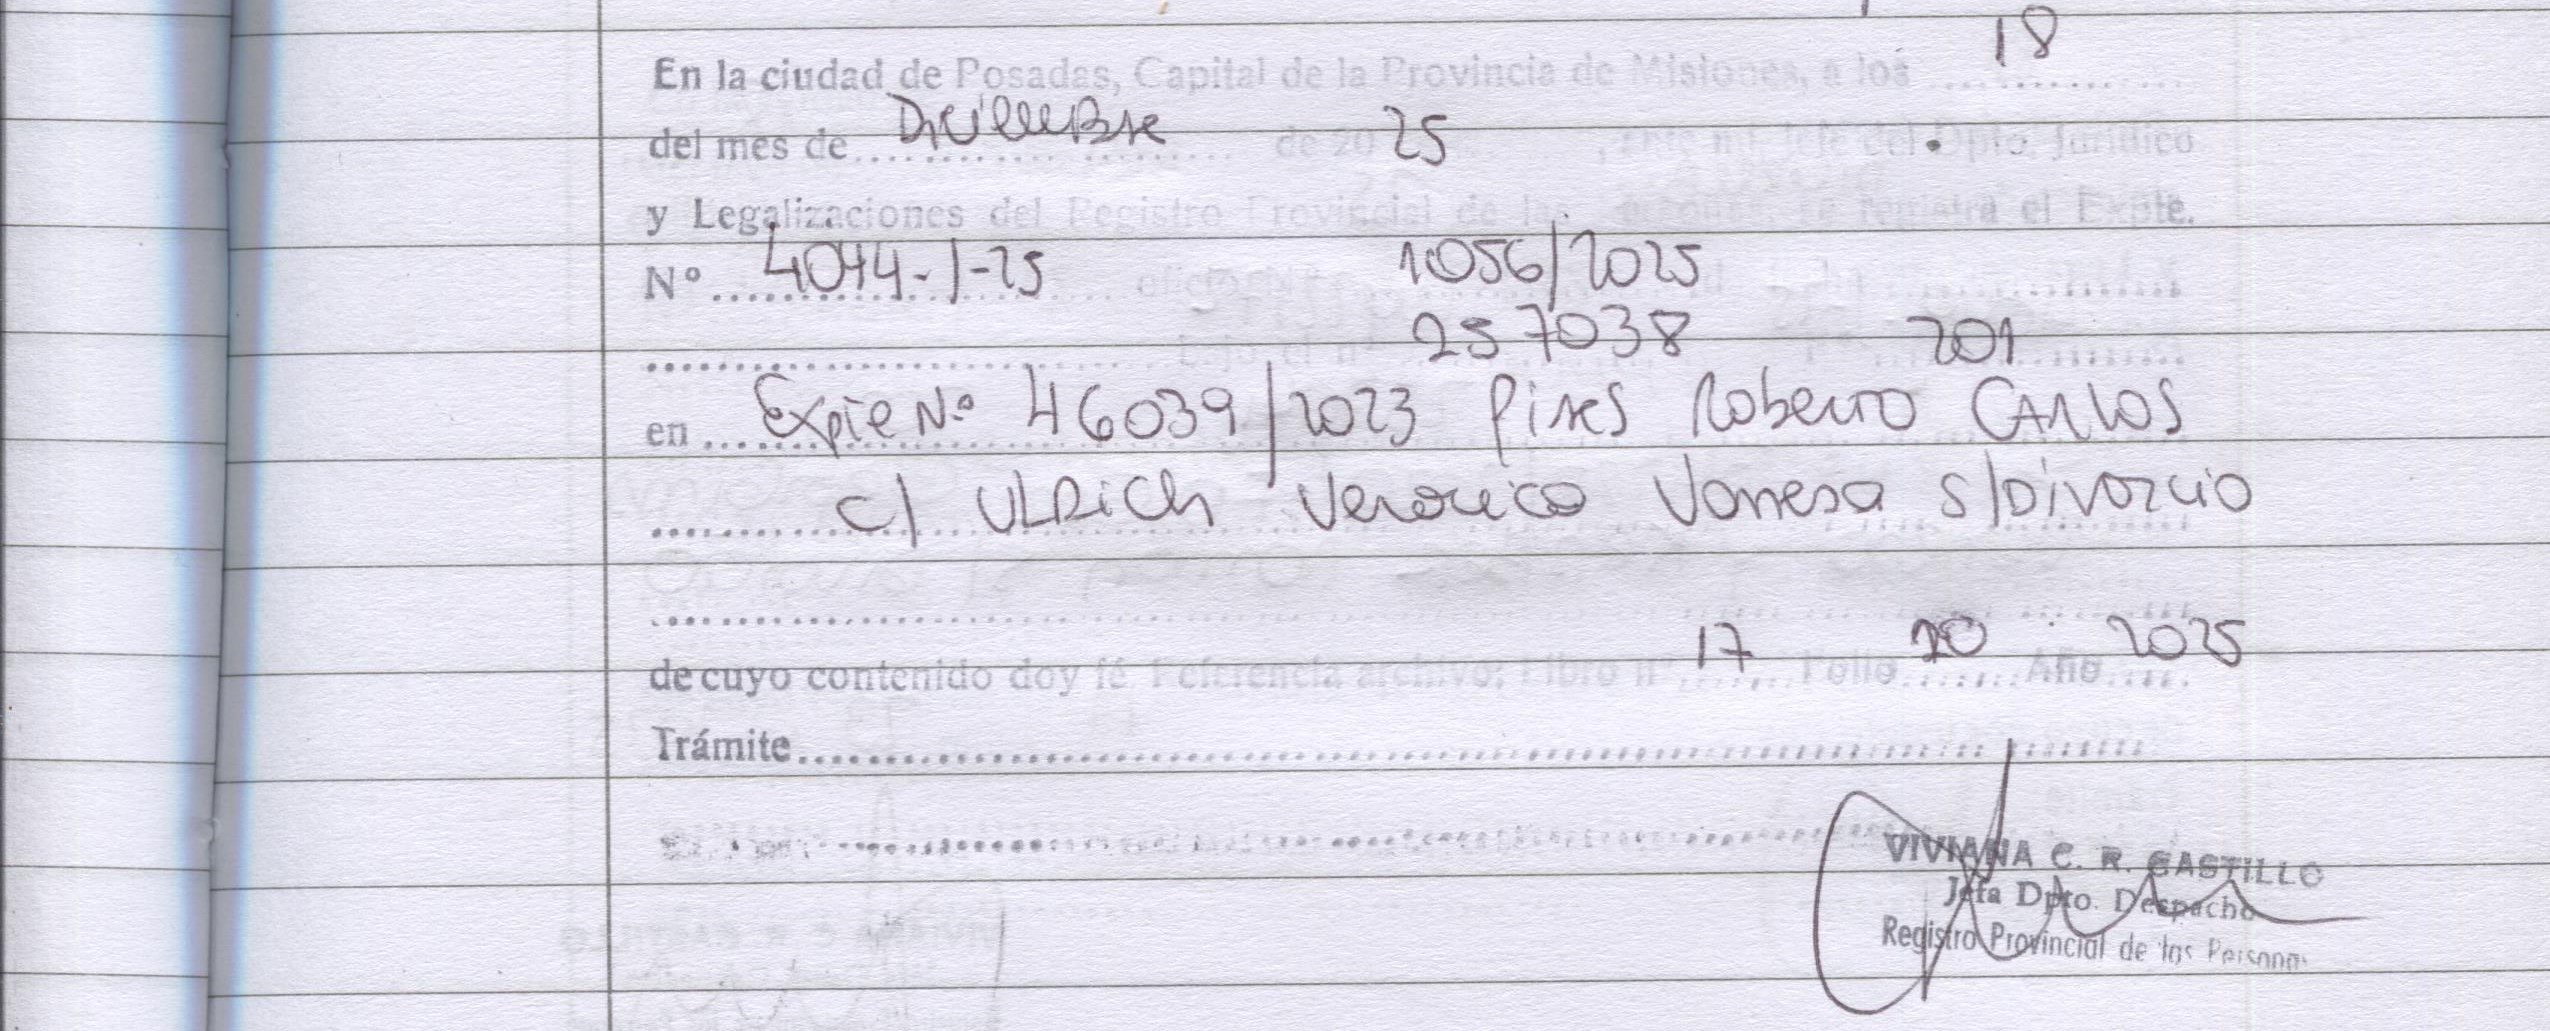 18
En la ciudad de Posadas, Capital de la Provincia de Misiones, a los
del mes de Diciembre de 20 25, ante mi Jefe del Dpto. Jurídico
y Legalizaciones del Registro Provincial de las se registra el Expte.
Nº 4044-J-25 oficio 1056/2025
bajo el nº 257038 201
en Expte Nº 46039/2023 Pires Roberto CARLOS
c/ ULRICH Veronica Vanesa s/DIVORCIO
17 10 2025
de cuyo contenido doy fé. Referencia archivo: Libro nº Folio Año
Trámite
VIVIANA C. R. CASTILLO
Jefa Dpto. Despacho
Registro Provincial de las Personas